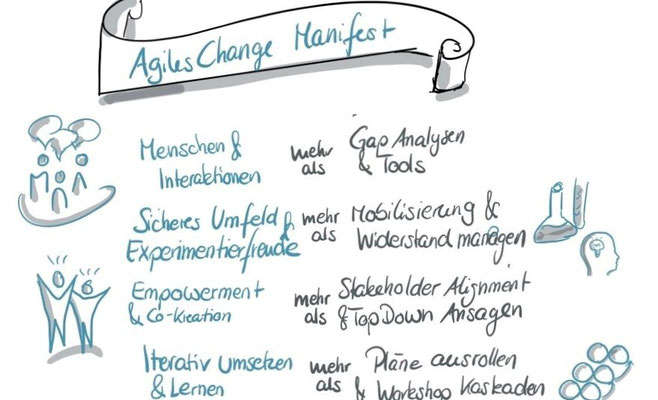 Agiles Change Manifest
Menschen & Interaktionen mehr als Gap Analysen & Tools
Sicheres Umfeld & Experimentierfreude mehr als Mobilisierung & Widerstand managen
Empowerment & Co-Kreation mehr als Stakeholder Alignment & Top Down Ansagen
Iterativ Umsetzen & Lernen mehr als Pläne ausrollen & Workshop Kaskaden